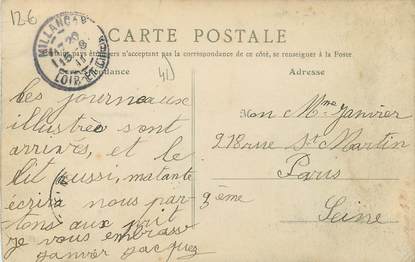 126
CARTE POSTALE
pays étrangers n'acceptent pas la correspondance de ce côté, se renseignez à la Poste
Correspondance
Adresse
MILLANÇAY
LOIR-ET-CHER
Les journeaux
illustrés sont
arrivés, et le
lit aussi, matante
écrira nous par
tons aux
je vous embrasse
Janvier Jacques
Mon Mme Janvier
218 rue St Martin
Paris
3ème
Seine